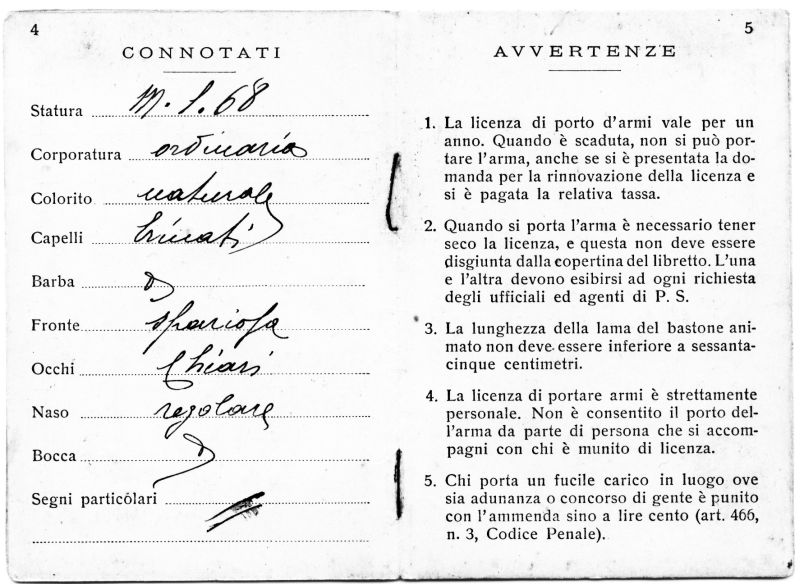 4
CONNOTATI
Statura m. 1.68
Corporatura ordinaria
Colorito naturale
Capelli
Barba
Fronte spaziosa
Occhi Chiari
Naso regolare
Bocca
Segni particolari
5
AVVERTENZE
1. La licenza di porto d'armi vale per un
anno. Quando è scaduta, non si può por-
tare l'arma, anche se si è presentata la do-
manda per la rinnovazione della licenza e
si è pagata la relativa tassa.
2. Quando si porta l'arma è necessario tener
seco la licenza, e questa non deve essere
disgiunta dalla copertina del libretto. L'una
e l'altra devono esibirsi ad ogni richiesta
degli ufficiali ed agenti di P. S.
3. La lunghezza della lama del bastone ani-
mato non deve essere inferiore a sessanta-
cinque centimetri.
4. La licenza di portare armi è strettamente
personale. Non è consentito il porto del-
l'arma da parte di persona che si accom-
pagni con chi è munito di licenza.
5. Chi porta un fucile carico in luogo ove
sia adunanza o concorso di gente è punito
con l'ammenda sino a lire cento (art. 466,
n. 3, Codice Penale).